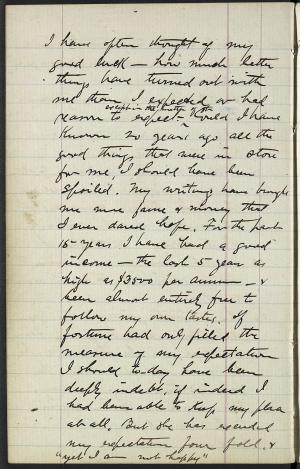 I have often thought of my
good luck — how much better
things have turned out with
me than I expected or had
except in the matter of
reason to expect — Could I have
known 20 years ago all the
good things that were in store
for me, I should have been
spoiled. My writings have brought
me more fame & money than
I ever dared hope. For the past
15 years I have had a good
income — the last 5 years as
high as $3500 per annum — &
been almost entirely free to
follow my own tastes. If
fortune had only filled the
measure of my expectation
I should to-day have been
deeply in debt, if indeed I
had been able to keep my place
at all. But she has exceeded
my expectation four fold. &
"yet I am not happy"